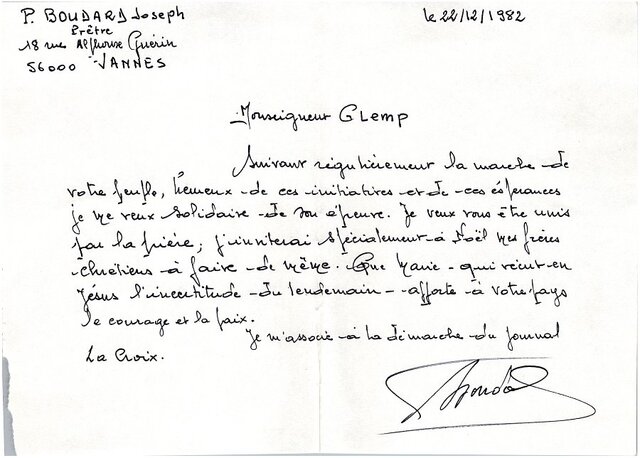 P. BOUDARD Joseph
Prêtre
18 rue Alphonse Guérin
56000 VANNES
le 22/12/1982
Monseigneur GLEMP
Suivant régulièrement la marche de
votre peuple, témeux de ces initiatives et de ces espérances
je me veux solidaire de son épreuve. Je veux vous être unis
par la prière, j'inviterai spécialement à Noël mes frères
chrétiens à faire de même. Que Marie qui vécut en
Jésus l'incertitude du lendemain apporte à votre pays
le courage et la paix.
Je m'associe à la démarche du journal
La Croix.